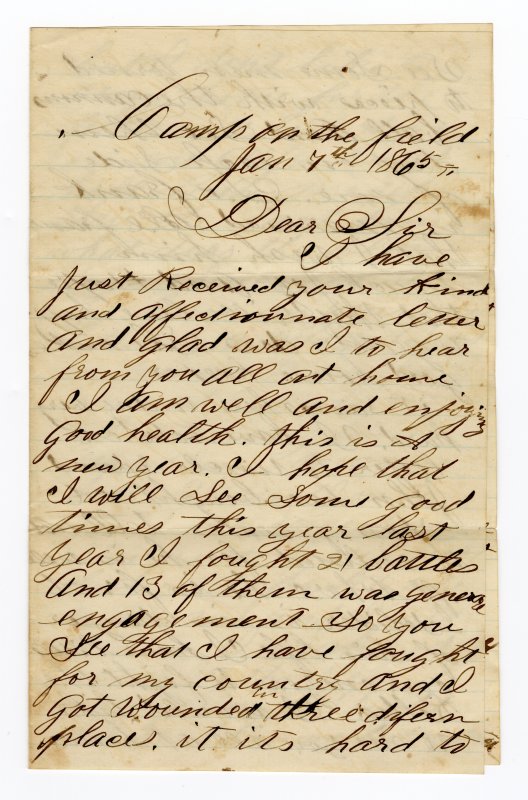 Camp on the field
Jan 7th 1865
Dear Sir
I have
just Received your kind
and affectionnate letter
And glad was I to hear
from you all at home
I am well and enjoying
Good health. this is A
new year. I hope that
I will See Some Good
times this year last
year I fought 21 battles
And 13 of them was General
engagement. So you
See that I have fought
for my country And I
Got wounded in three difern
place. it its hard to